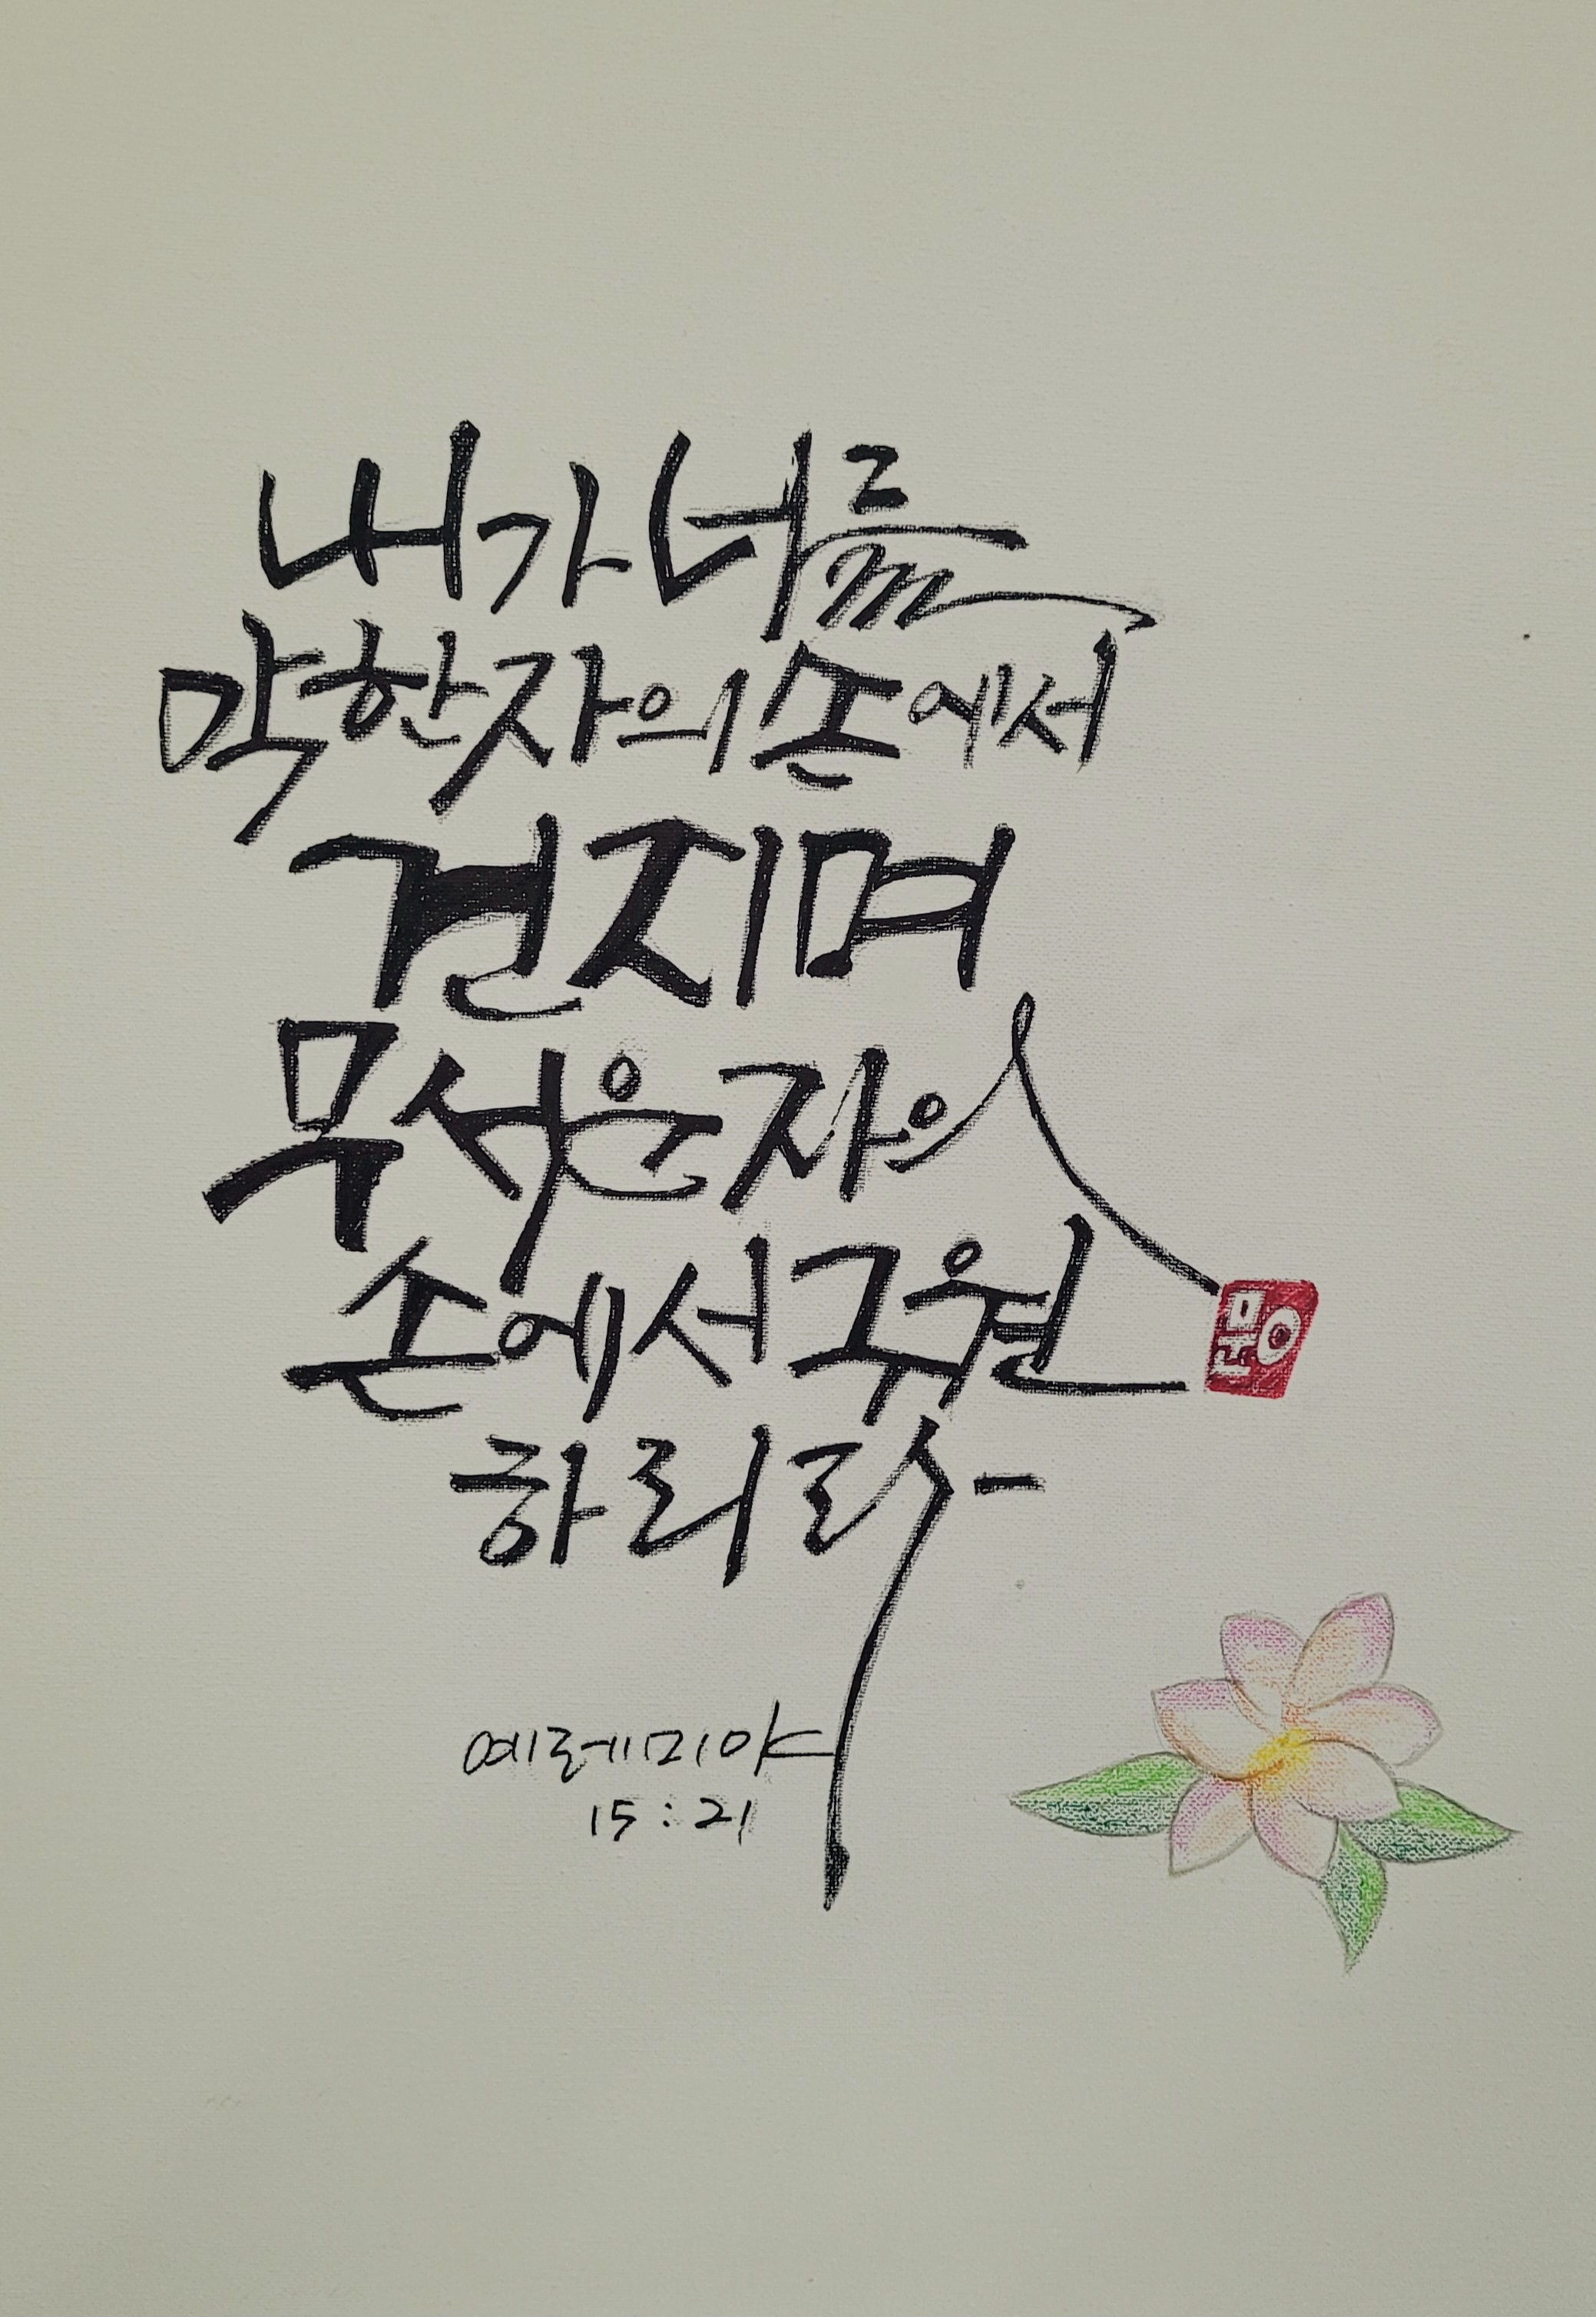 내가 너를
악한 자의 손에서
건지며
무서운 자의
손에서 구원
하리라-
예레미야
15:21